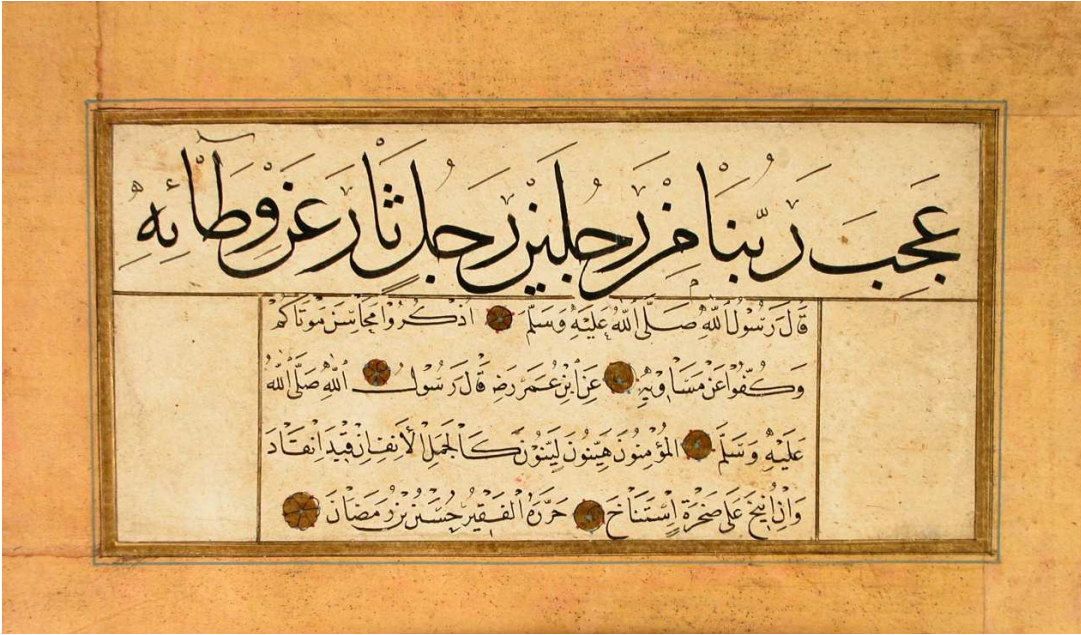 عَجِبَ رَبُّنَا مِنْ رَجُلَيْنِ رَجُلٍ ثَارَ عَنْ وِطَائِهِ
قَالَ رَسُولُ اللّٰهِ صَلَّى اللّٰهُ عَلَيْهِ وَسَلَّمَ اُذْكُرُوا مَحَاسِنَ مَوْتَاكُمْ
وَكُفُّوا عَنْ مَسَاوِيهِمْ عَنِ ابْنِ عُمَرَ رَضِ قَالَ رَسُولُ اللّٰهِ صَلَّى اللّٰهُ
عَلَيْهِ وَسَلَّمَ الْمُؤْمِنُونَ هَيِّنُونَ لَيِّنُونَ كَالْجَمَلِ الْأَنِفِ اِنْ قِيدَ انْقَادَ
وَاِنْ اُنِيخَ عَلَى صَخْرَةٍ اِسْتَنَاخَ حَرَّرَهُ الْفَقِيرُ حُسَيْنُ بْنُ رَمَضَانَ